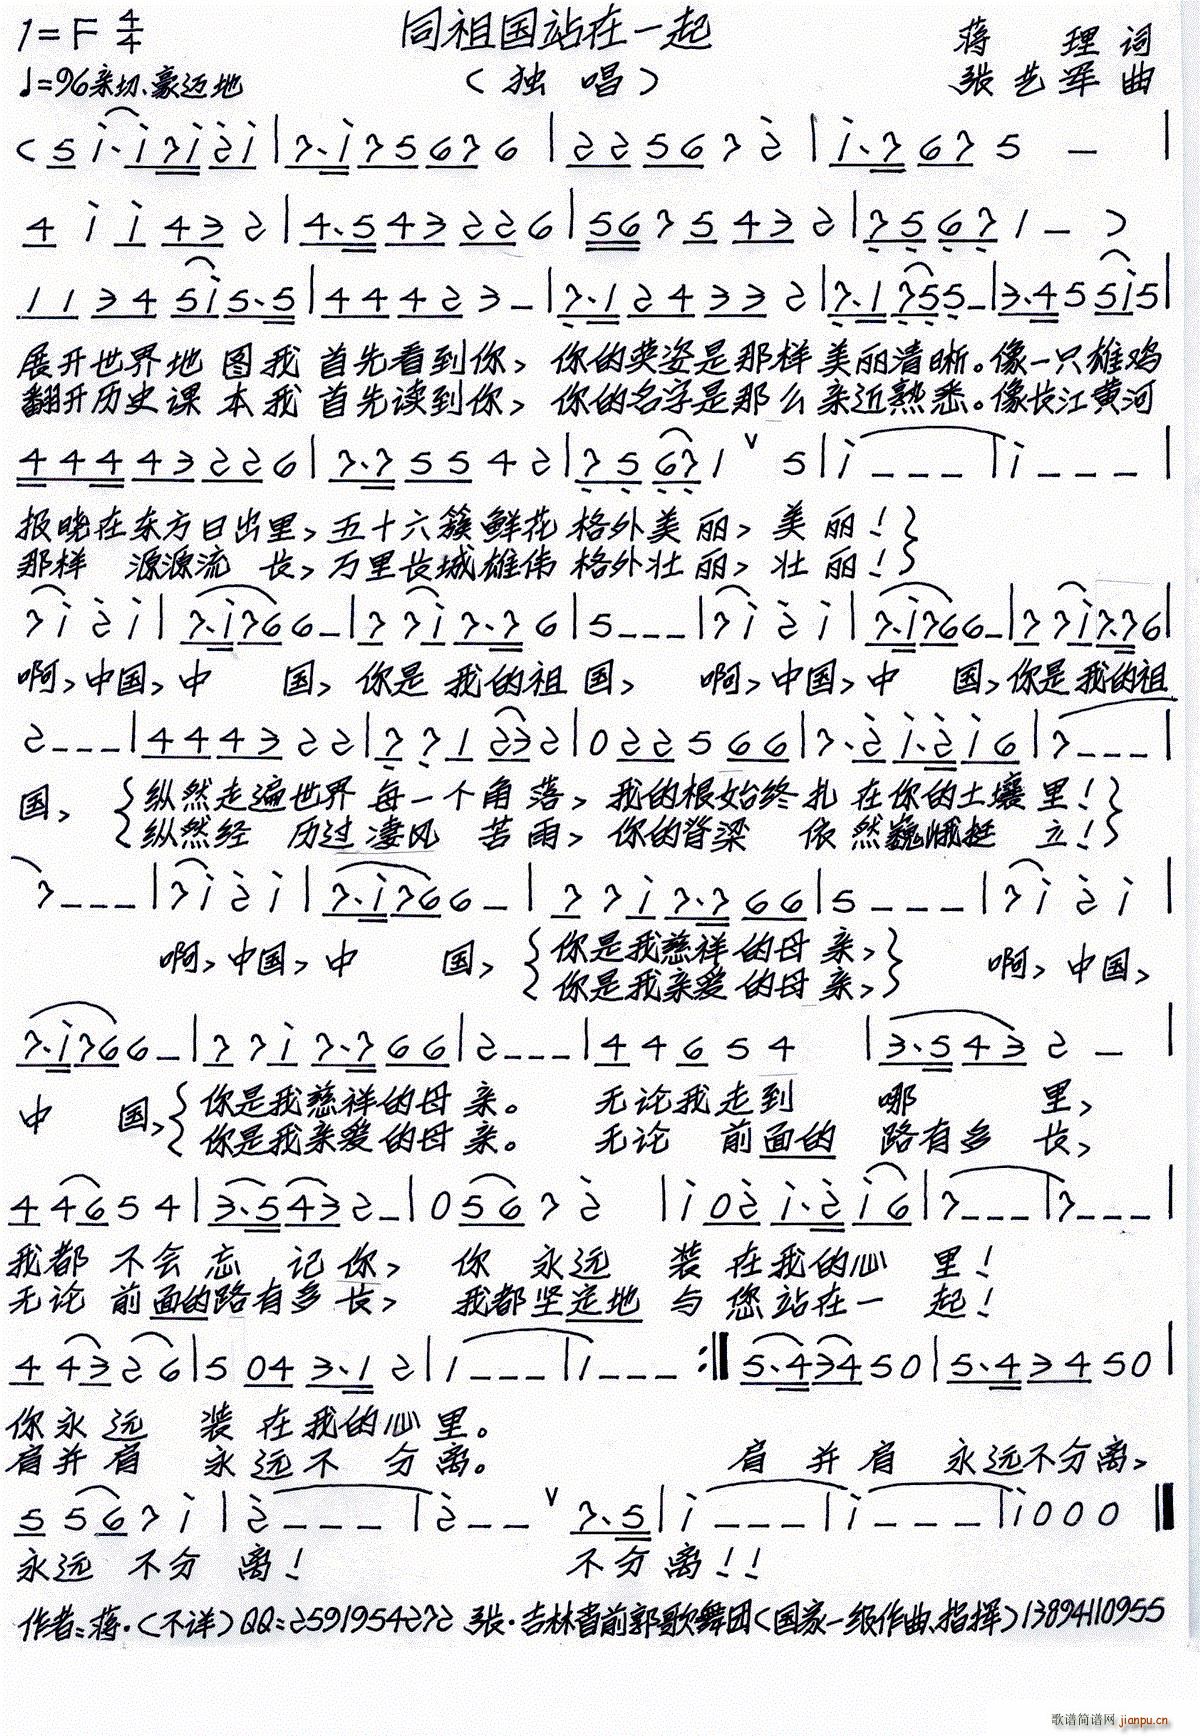 1=F 4/4 同祖国站在一起 蒋 理 词
♩=96亲切、豪迈地 (独 唱) 张艺军 曲
(5 i·i7i2i|7·i75676|225672|i·7675 -|
4 i i 432|4·5432226|5675432|75671 - )
11345i5·5|444223-|7·124332|7·1755-|3·455i5|
展开世界地 图我 首先看到你, 你的英姿是那样美丽清晰。像一只雄鸡
翻开历史课 本我 首先读到你, 你的名字是那么亲近熟悉。像长江黄河
44443226|7·75542|75671 ∨ 5|i - - -|i - - -|
报晓在东方日出里, 五十六簇鲜花 格外美丽, 美丽!}
那样 源源流 长, 万里长城雄伟 格外壮丽, 壮丽!}
7i2i|7·i766-|77i7·76|5---|7i2i|7·i766-|77i7·76|
啊,中国,中 国, 你是 我的祖国, 啊,中国,中 国,你是我的祖
2---|444322|771232|022566|7·2i·2i6|7---|
国, {纵然走遍世界 每一个角落, 我的根始终扎 在你的土壤里!}
{纵然经 历过凄风 苦雨, 你的脊梁 依然巍峨挺 立!}
7---|7i2i|7·i766-|77i7·766|5---|7i2i|
啊,中国,中 国, {你是我慈祥的母亲,} 啊,中国,
{你是我亲爱的母亲,}
7·i766-|77i7·766|2---|44654|3·5432-|
中 国,{你是我慈祥的母亲。 无论我走到 哪 里,
{你是我亲爱的母亲。 无论 前面的 路有多 长,
44654|3·5432-|05672|i02i·2i6|7---|7---|
我都 不会忘 记你, 你 永远 装 在我的心 里!
无论 前面的路有多长, 我都坚定地 与您站在一 起!
44326|5043·12|1---|1---:‖5·43450|5·43450|
你永远 装 在我的心里。
肩并肩 永远不 分离。 肩 并肩 永远不分离,
5567i|2---|2-- ∨ 7·5|i---|i---|i000‖
永远 不分 离! 不分离!!
作者:蒋·(不详)QQ:2591954272 张·吉林省前郭歌舞团(国家一级作曲、指挥)13894110955
歌谱简谱网 jianpu.cn